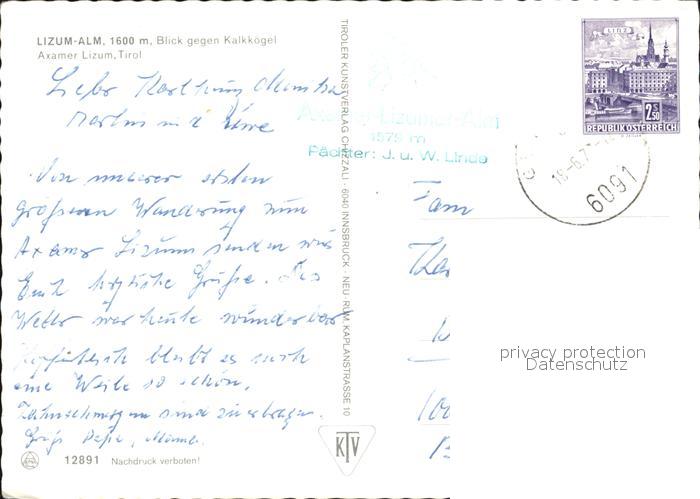 LIZUM-ALM, 1600 m, Blick gegen Kalkkögel
Axamer Lizum, Tirol
Liebe
Martin und Uwe
Von unserer ersten
größeren Wanderung
Axamer Lizum senden wir
Euch herzliche Grüße. Das
Wetter war heute wunderbar
Hoffentlich bleibt es noch
eine Weile so schön.
Zahnschmerzen sind zu ertragen.
Papa, Mama.
12891 Nachdruck verboten!
TIROLER KUNSTVERLAG CHIZZALI · 6040 INNSBRUCK - NEU-RUM, KAPLANSTRASSE 10
KTV
Axamer-Lizumer-Alm
1579 m
Pächter: J. u. W. Linde
LINZ
2S50
REPUBLIK ÖSTERREICH
18-6.7
6091
Fam
privacy protection
Datenschutz